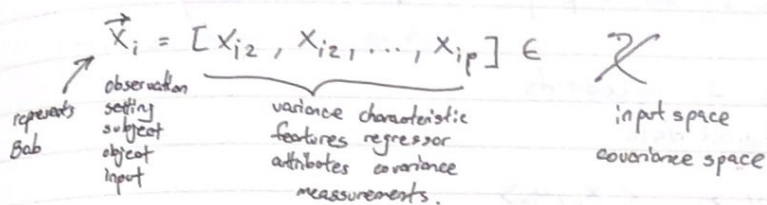 x⃗i = [ xi2 , xi2 , ..., xip ] ∈ 𝒳
represents
Bob
observation
setting
subject
object
input
variance characteristic
features regressor
attributes covariance
meassurements.
input space
covariance space